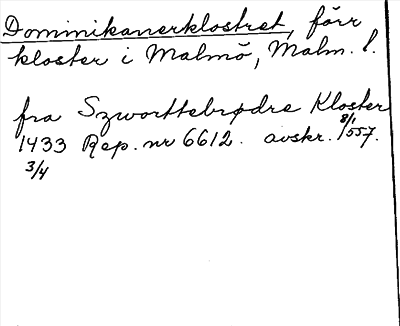 Dominikanerklostret, förr
kloster i Malmö, Malm. l.
fra Szworttebrødre Kloster
1433 Rep. nr 6612. avskr. 8/1 1557.
3/4